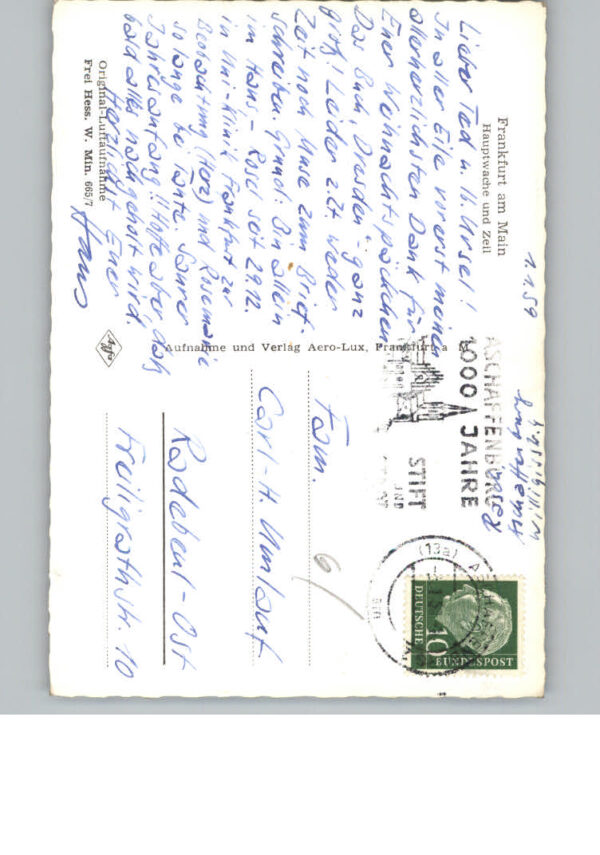 Frankfurt am Main
Hauptwache und Zeil
1.1.59
Lieber Ted u. lb. Ursel!
In aller Eile vorerst meinen
allerherzlichsten Dank für
Euer Weihnachtspäckchen.
Das Buch „Dresden" ganz
groß! Leider z.Zt. weder
Zeit noch Muse zum Brief-
schreiben. Grund: Bin allein
im Haus – Rosel seit 29.12.
in Uni-Klinik Frankfurt zur
Beobachtung (Herz) und Rosemarie
solange bei Tante. Saurer
Jahresanfang!! Hoffe aber daß
bald alles nachgeholt wird.
Herzlichst Euer
Hans
Original-Luftaufnahme
Frei Hess. W. Min. 665/7
Agfa
Aufnahme und Verlag Aero-Lux, Frankfurt a. M.
ASCHAFFENBURG
1000 JAHRE
STIFT
UND
(13a)
DEUTSCHE
BUNDESPOST
10
Fam.
Carl-H. Umlauf
6/
Radebeul-Ost
Freiligrathstr. 10